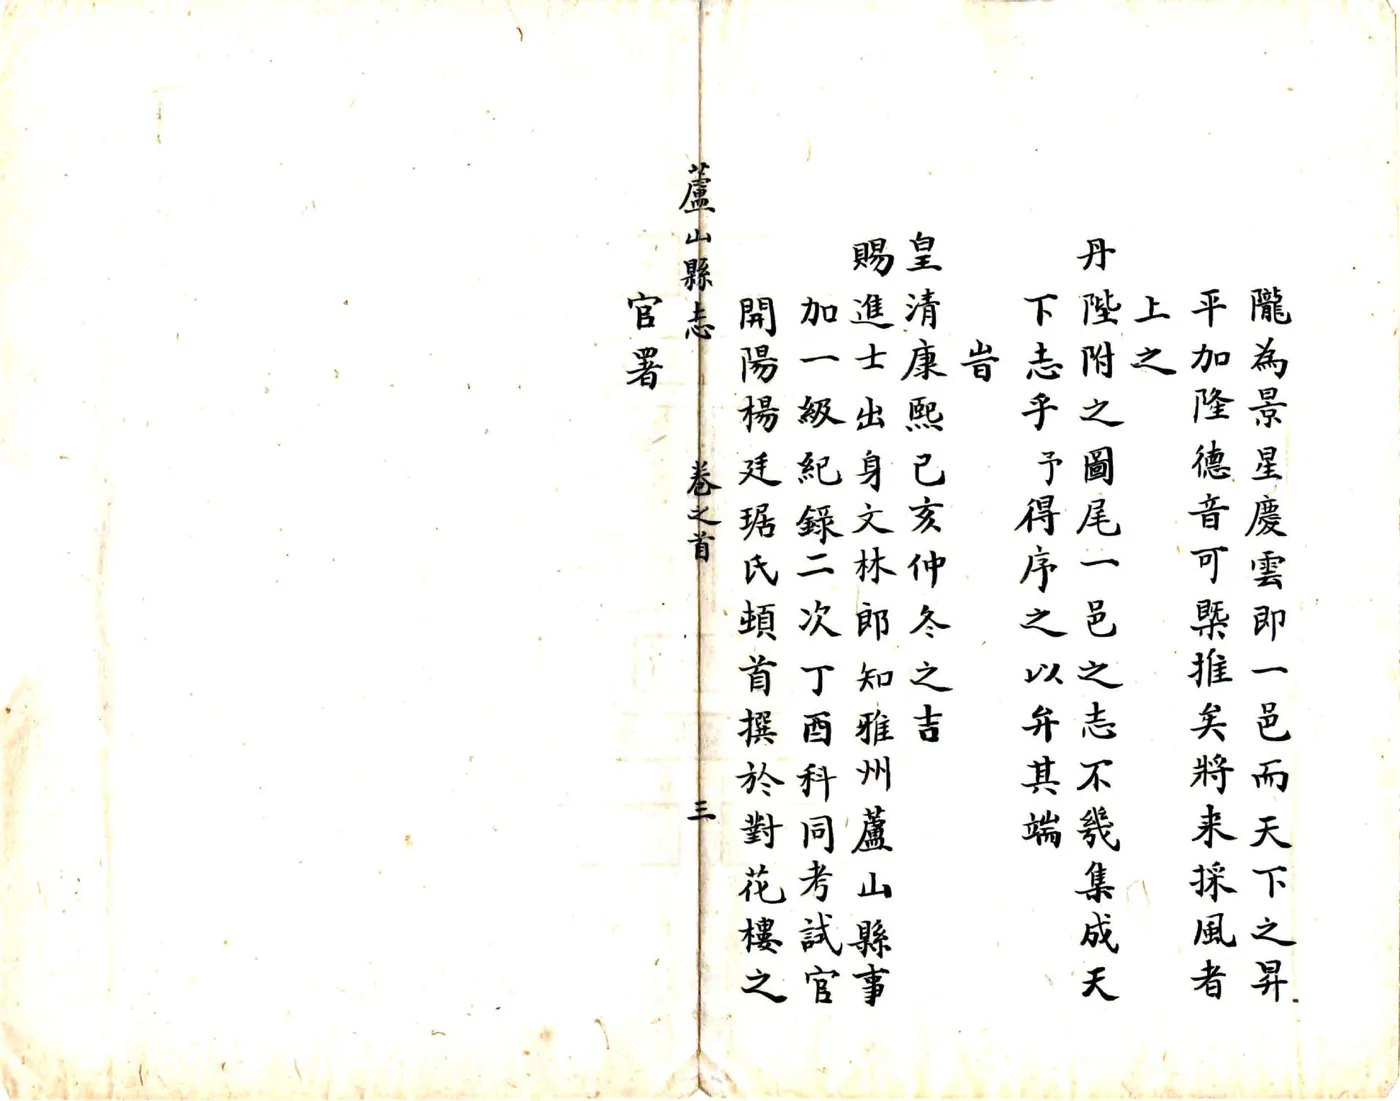 隴為景星慶雲即一邑而天下之昇
平加隆德音可槩推矣將来採風者
上之
丹陛附之圖尾一邑之志不幾集成天
下志乎予得序之以弁其端
旹
皇清康熙己亥仲冬之吉
賜進士出身文林郎知雅州蘆山縣事
加一級紀錄二次丁酉科同考試官
開陽楊廷琚氏頓首撰於對花樓之
蘆山縣志 卷之首 三
官署